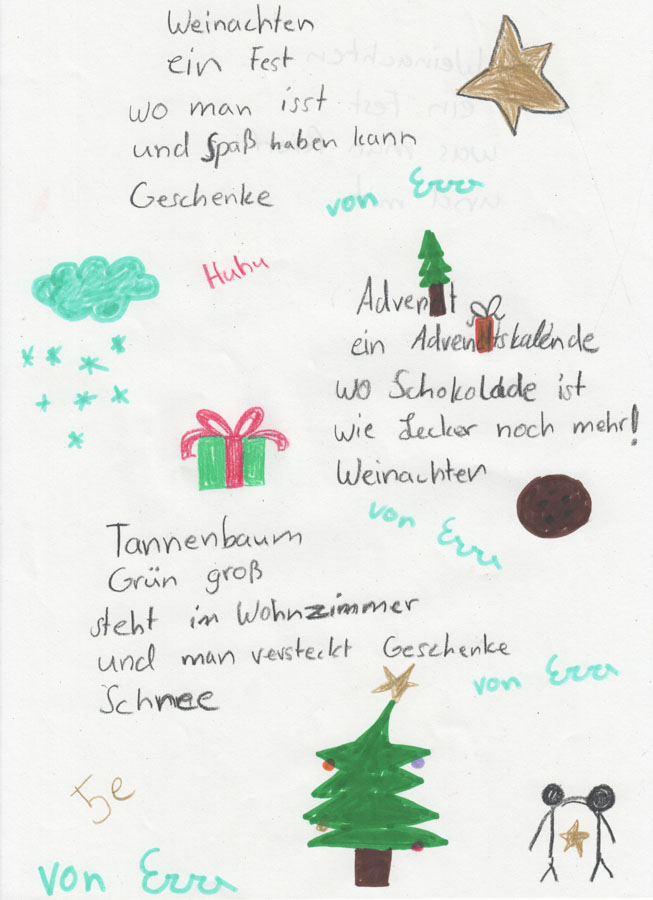 Weinachten
ein Fest
wo man isst
und Spaß haben kann
Geschenke
von Erra
Huhu
Advent
ein Adventskalende
wo Schokolade ist
wie Lecker noch mehr!
Weinachten
von Erra
Tannenbaum
Grün groß
steht im Wohnzimmer
und man versteckt Geschenke
Schnee
von Erra
5e
von Erra